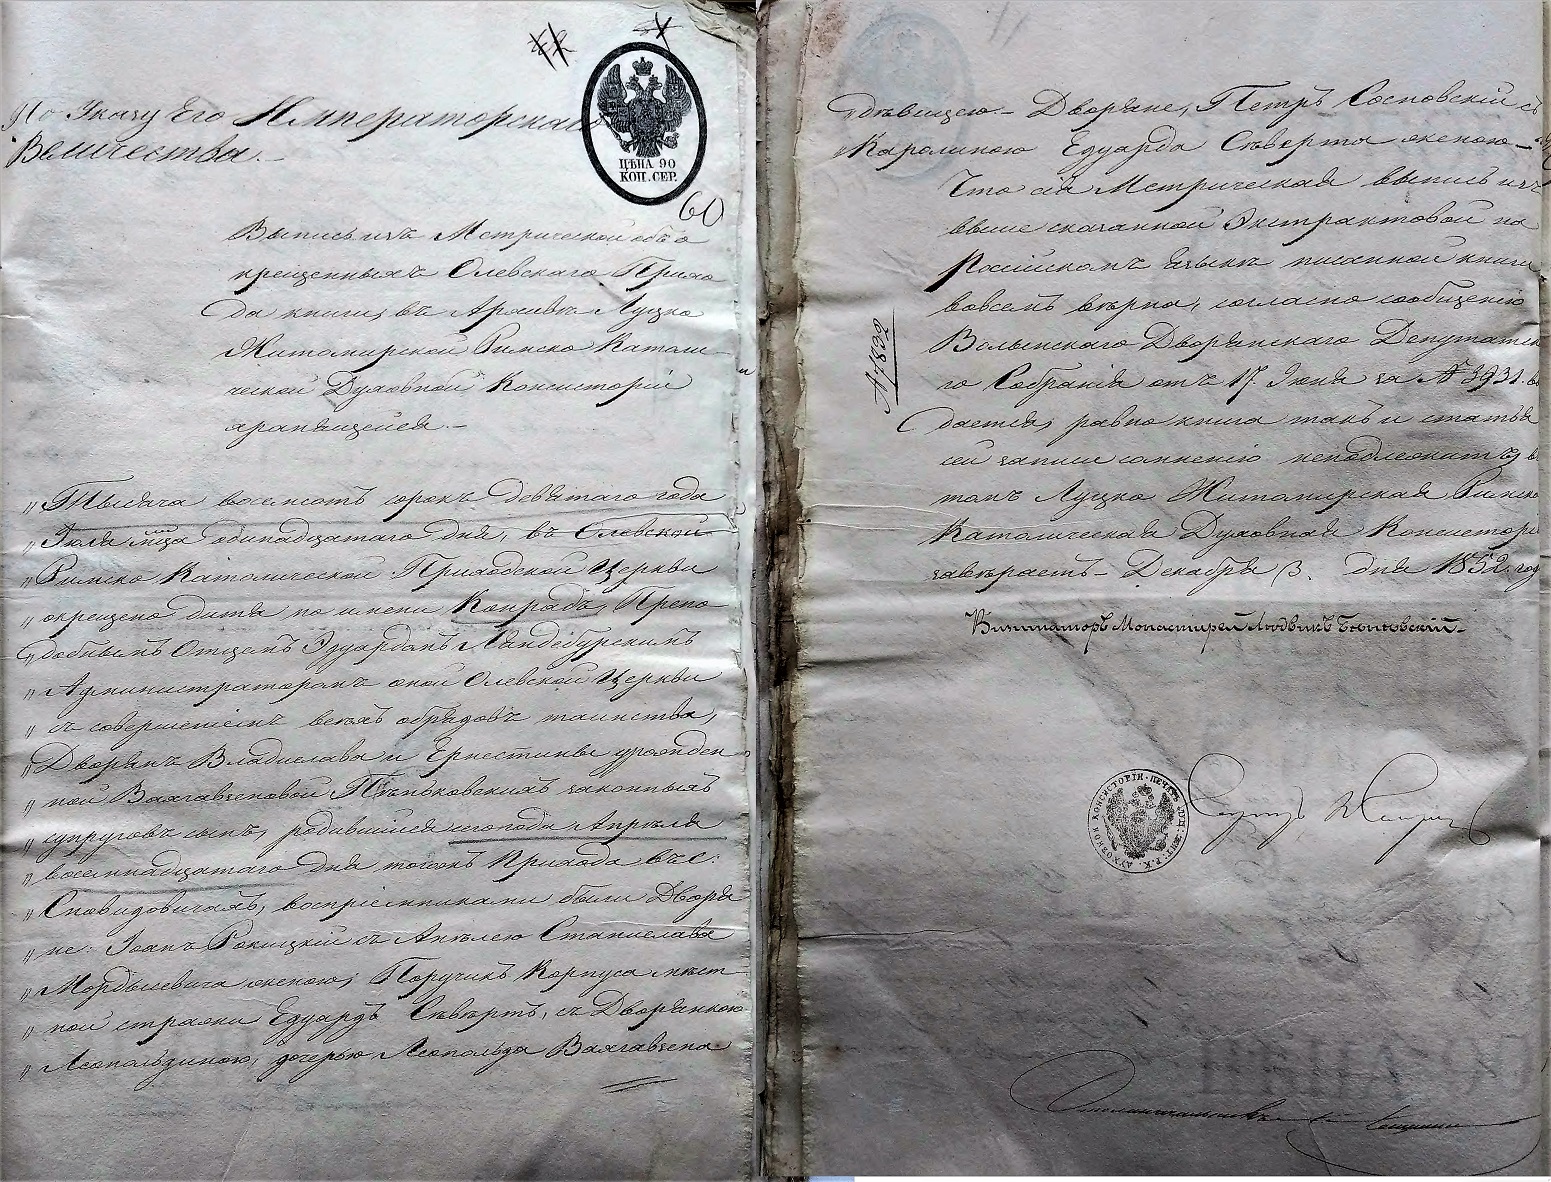 По Указу Его Императорскаго
Величества.–
ЦѢНА 90
КОП. СЕР.
60
Выпись изъ Метрической объ о
крещенныхъ Олевскаго Прихо
да книги, въ Архивѣ Луцко
Житомирской Римско Католи-
ческой Духовной Консисторіи
хранящейся.–
„Тысяча восемсотъ сорокъ девятаго года
„Іюля м͠ца одинадцатаго дня, въ Олевской
„Римско Католической Приходской Церкви
„окрещено дитя по имени Конрадъ, Препо
„добнымъ Отцемъ Эдуардомъ Ляндебурскимъ
„Администраторомъ оной Олевской Церкви
„съ совершеніемъ всѣхъ обрядовъ таинства,
„Дворянъ Владислава и Ернестины урожден
„ной Вахгавзеновой Пѣньковскихъ законныхъ
„супруговъ сынъ, родившійся сего года Апрѣля
„восемнадцатаго дня томже Прихода въ с:
„Сновидовичахъ, воспріемниками были Дворя
„не: Іоанъ Рокицкій съ Анѣлею Станислава
„Мордвилевича женою, Поручикъ Корпуса мѣст
„ной стражи Едуардъ Сѣвѣртъ, съ Дворянкою
„Леопольдиною, дочерью Леопольда Вахгавзена
„дѣвицею.– Дворяне, Петръ Сосновскій съ
„Каролиною Едуарда Сѣверта женою.–
Что сія Метрическая выпись изъ
выше сказанной Экстрактовой на
Россійскомъ языкѣ писанной книги
вовсемъ вѣрна, согласно сообщенію
Волынскаго Дворянскаго Депутатск
го Собранія отъ 17. Іюня за № 3931. вы
дается, равно книга такъ и статья
сей записи сомнѣнію неподлежитъ, в
томъ Луцко Житомирская Римско
Католическая Духовная Консисторі
завѣряетъ– Декабря 3. дня 1852. год
№ 7832
Визитаторъ Монастырей Людвикъ
ДУХОВНОЙ КОНСИСТОРІИ ПЕЧАТЬ ЛУЦ: ЖИТ. Р. К.
Секретарь
Столоначальникъ